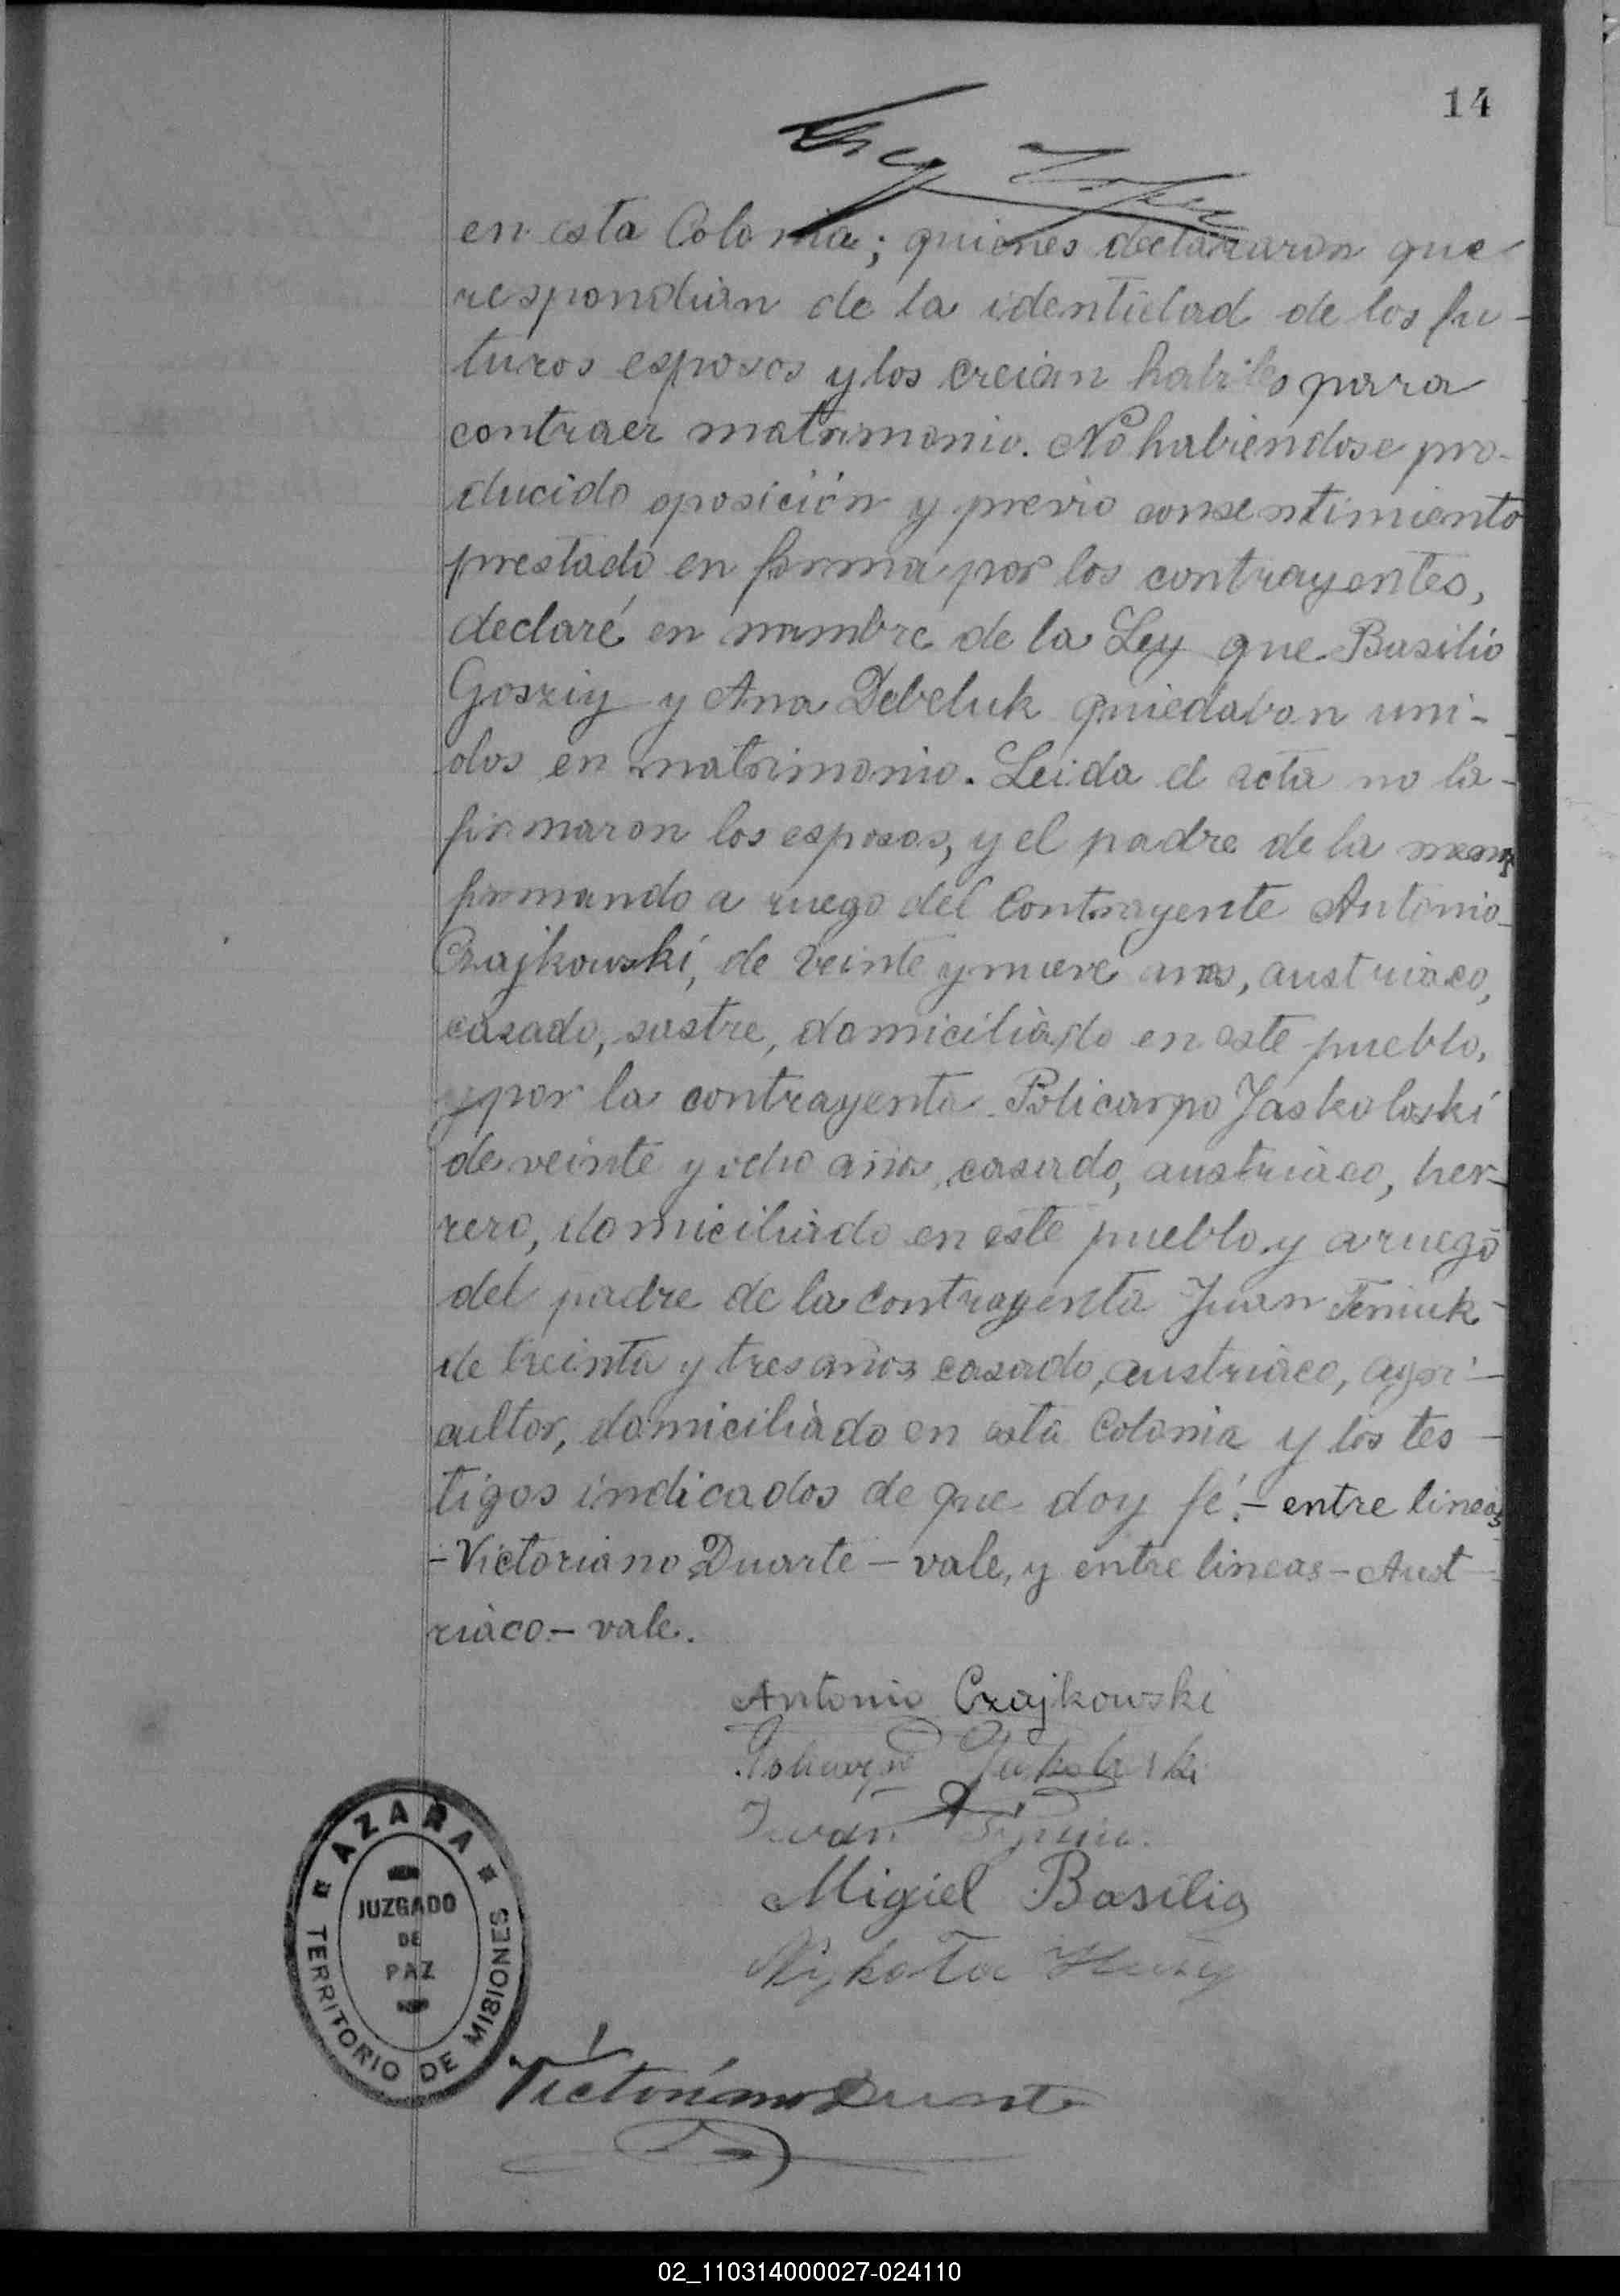 14
en esta Colonia; quienes declararon que
respondian de la identidad de los fu-
turos esposos y los creian habiles para
contraer matrimonio. No habiendose pro-
ducido oposición y previo consentimiento
prestado en forma por los contrayentes,
declaré en nombre de la Ley que Basilio
Gosziy y Ana Debeluk quiedaban uni-
dos en matrimonio. Leida el acta no la-
firmaron los esposos, y el padre de la
firmando a ruego del Contrayente Antonio
Czajkowski, de veinte y nueve anos, austriaco,
casado, sastre, domiciliado en este pueblo,
y por la contrayenta Policarpo Jaskoloski
de veinte y ocho años, casado, austriaco, her-
rero, domiciliado en este pueblo y a ruego
del padre de la contrayenta Juan Teniuk-
de treinta y tres años casado, austriaco, agri-
cultor, domiciliado en esta Colonia y los tes-
tigos indicados de que doy fé.- entre lineas
-Victoriano Duarte - vale, y entre lineas - Aust-
riaco - vale.
Antonio Czajkowski
Iván
Migiel Basilig
Nykola
Victoriano Duarte
AZARA
JUZGADO
DE
PAZ
TERRITORIO DE MISIONES
02_110314000027-024110